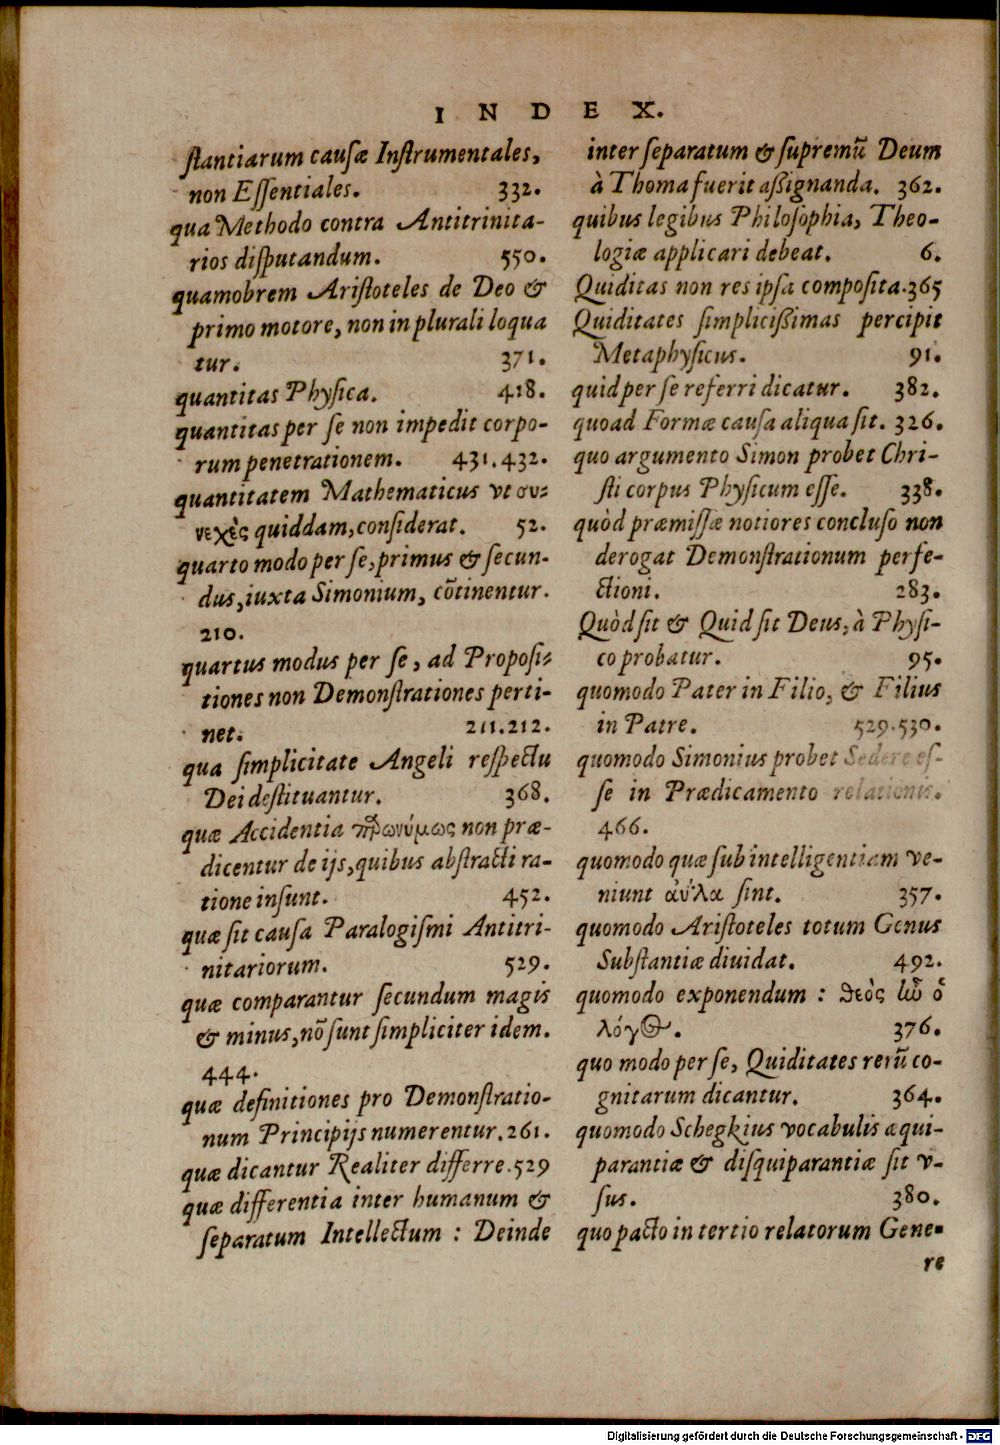 INDEX.
stantiarum causæ Instrumentales,
non Essentiales. 332.
qua Methodo contra Antitrinita-
rios disputandum. 550.
quamobrem Aristoteles de Deo &
primo motore, non in plurali loqua
tur. 371.
quantitas Physica. 418.
quantitas per se non impedit corpo-
rum penetrationem. 431.432.
quantitatem Mathematicus vt συν-
νεχὲς quiddam, considerat. 52.
quarto modo per se, primus & secun-
dus, iuxta Simonium, cōtinentur.
210.
quartus modus per se, ad Proposi-
tiones non Demonstrationes perti-
net. 211.212.
qua simplicitate Angeli respectu
Dei destituantur. 368.
quæ Accidentia non præ-
dicentur de ijs, quibus abstracti ra-
tione insunt. 452.
quæ sit causa Paralogismi Antitri-
nitariorum. 529.
quæ comparantur secundum magis
& minus, nō sunt simpliciter idem.
444.
quæ definitiones pro Demonstratio-
num Principijs numerentur. 261.
quæ dicantur Realiter differre. 529
quæ differentia inter humanum &
separatum Intellectum : Deinde
inter separatum & supremū Deum
à Thoma fuerit aßignanda. 362.
quibus legibus Philosophia, Theo-
logiæ applicari debeat. 6.
Quiditas non res ipsa composita. 365
Quiditates simplicißimas percipit
Metaphysicus. 91.
quid per se referri dicatur. 382.
quoad Formæ causa aliqua sit. 326.
quo argumento Simon probet Chri-
sti corpus Physicum esse. 338.
quòd præmissæ notiores concluso non
derogat Demonstrationum perfe-
ctioni. 283.
Quòd sit & Quid sit Deus, à Physi-
co probatur. 95.
quomodo Pater in Filio, & Filius
in Patre. 529.530.
quomodo Simonius probet Sedere es-
se in Prædicamento relationis.
466.
quomodo quæ sub intelligentiam ve-
niunt ἀύλα sint. 357.
quomodo Aristoteles totum Genus
Substantiæ diuidat. 492.
quomodo exponendum : θεὸς ὦ ὁ
λόγος. 376.
quo modo per se, Quiditates rerū co-
gnitarum dicantur. 364.
quomodo Schegkius vocabulis æqui-
parantiæ & disquiparantiæ sit v-
sus. 380.
quo pacto in tertio relatorum Gene-
re
Digitalisierung gefördert durch die Deutsche Forschungsgemeinschaft - DFG